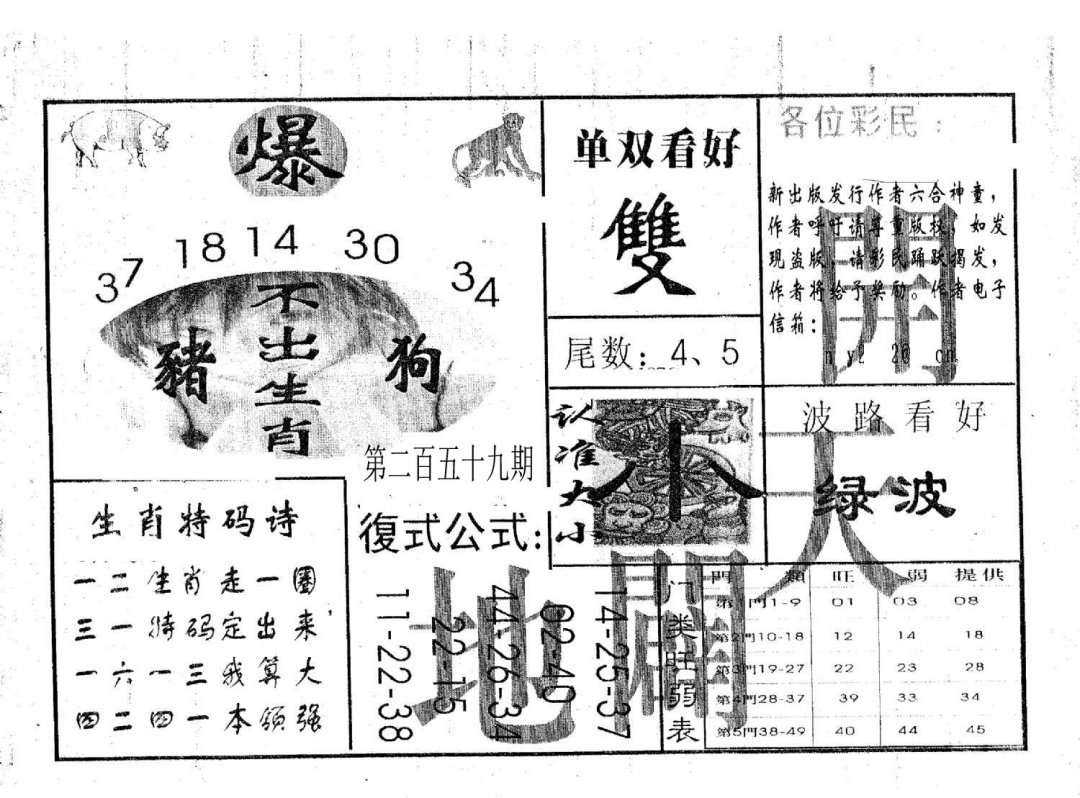 爆
37 18 14 30 34
不出生肖
豬
狗
第二百五十九期
单双看好
雙
尾数：4、5
各位彩民：
新出版发行作者六合神童，
作者呼吁请尊重版权，如发
现盗版，请彩民踊跃揭发，
作者将给予奖励。作者电子
信箱：
認准大小
小
波路看好
绿波
開
天
地
開
生肖特码诗
一二生肖走一圈
三一特码定出来，
一六一三我算大
四二四一本领强
復式公式：
11-22-38
22-15
44-26-34
02-40
14-25-37
门类旺弱表
門 類 旺 弱 提供
第1門1-9 01 03 08
第2門10-18 12 14 18
第3門19-27 22 23 28
第4門28-37 39 33 34
第5門38-49 40 44 45